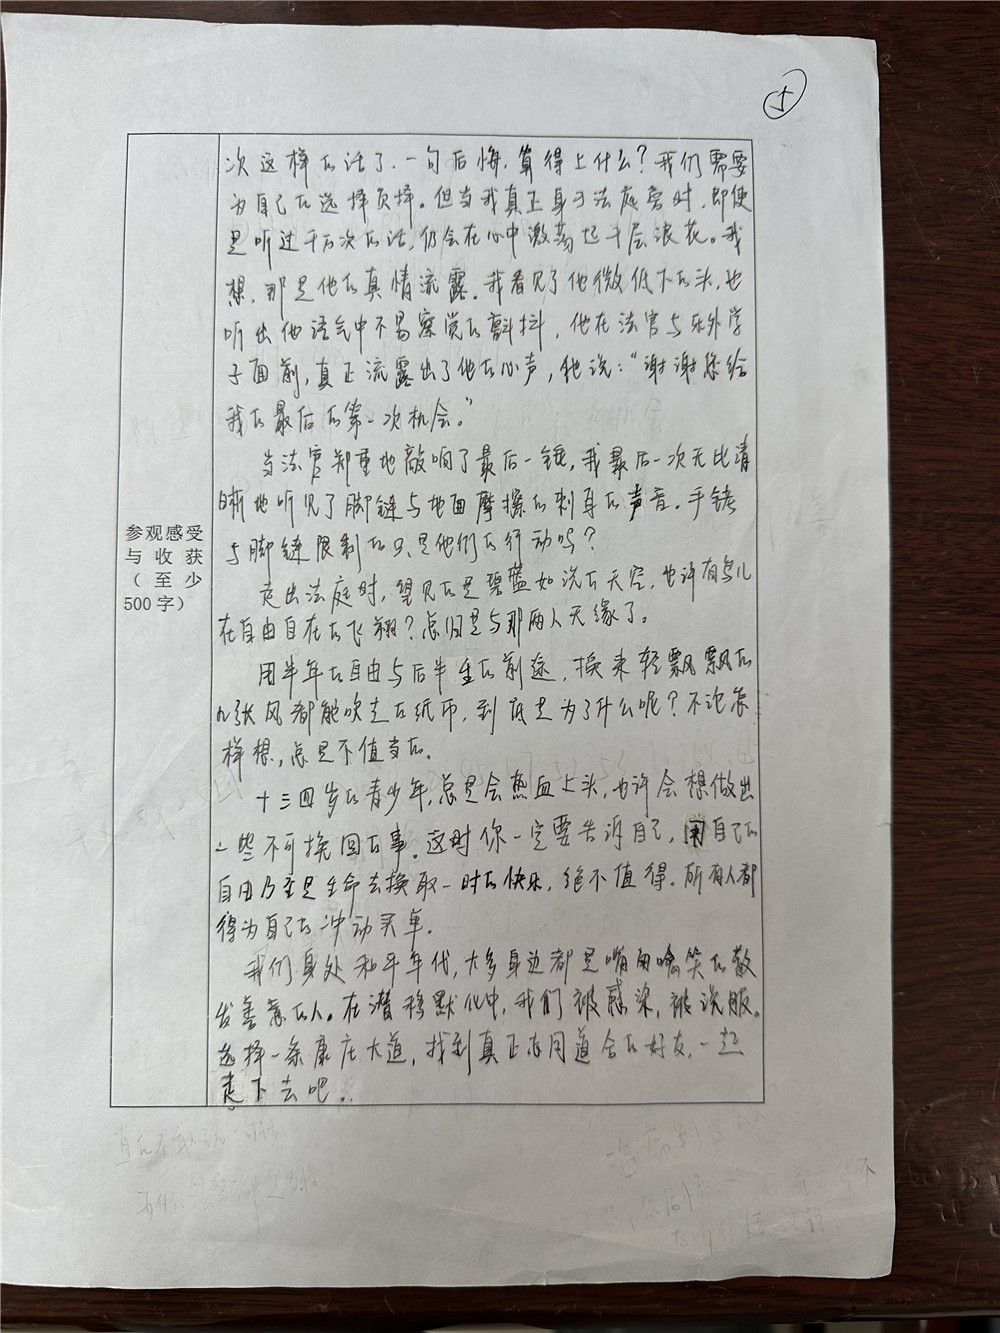 5
参观感受
与收获
（至少
500字）
次这样的话了，一句后悔，算得上什么？我们需要
为自己的选择负择。但当我真正身于法庭旁时，即便
是听过千万次的话，仍会在心中激荡起千层浪花。我
想，那是他的真情流露。我看见了他微低下的头，也
听出他语气中不易察觉的颤抖，他在法官与乐外学
子面前，真正流露出了他的心声，他说：“谢谢您给
我的最后的第一次机会。”
当法官郑重地敲响了最后一锤，我最后一次无比清
晰地听见了脚链与地面摩擦的刺耳的声音。手铐
与脚链限制的只是他们的行动吗？
走出法庭时，望见的是碧蓝如洗的天空，也许有鸟儿
在自由自在的飞翔？总归是与那两人无缘了。
用半年的自由与后半生的前途，换来轻飘飘的
几张风都能吹走的纸币，到底是为了什么呢？不论怎
样想，总是不值当的。
十三四岁的青少年，总是会热血上头，也许会想做出
一些不可挽回的事。这时你一定要告诉自己，用自己的
自由乃至是生命去换取一时的快乐，绝不值得。所有人都
得为自己的冲动买单。
我们身处和平年代，大多身边都是嘴角噙笑的散
发善意的人。在潜移默化中，我们被感染，被说服。
选择一条康庄大道，找到真正志同道合的好友，一起
走下去吧。